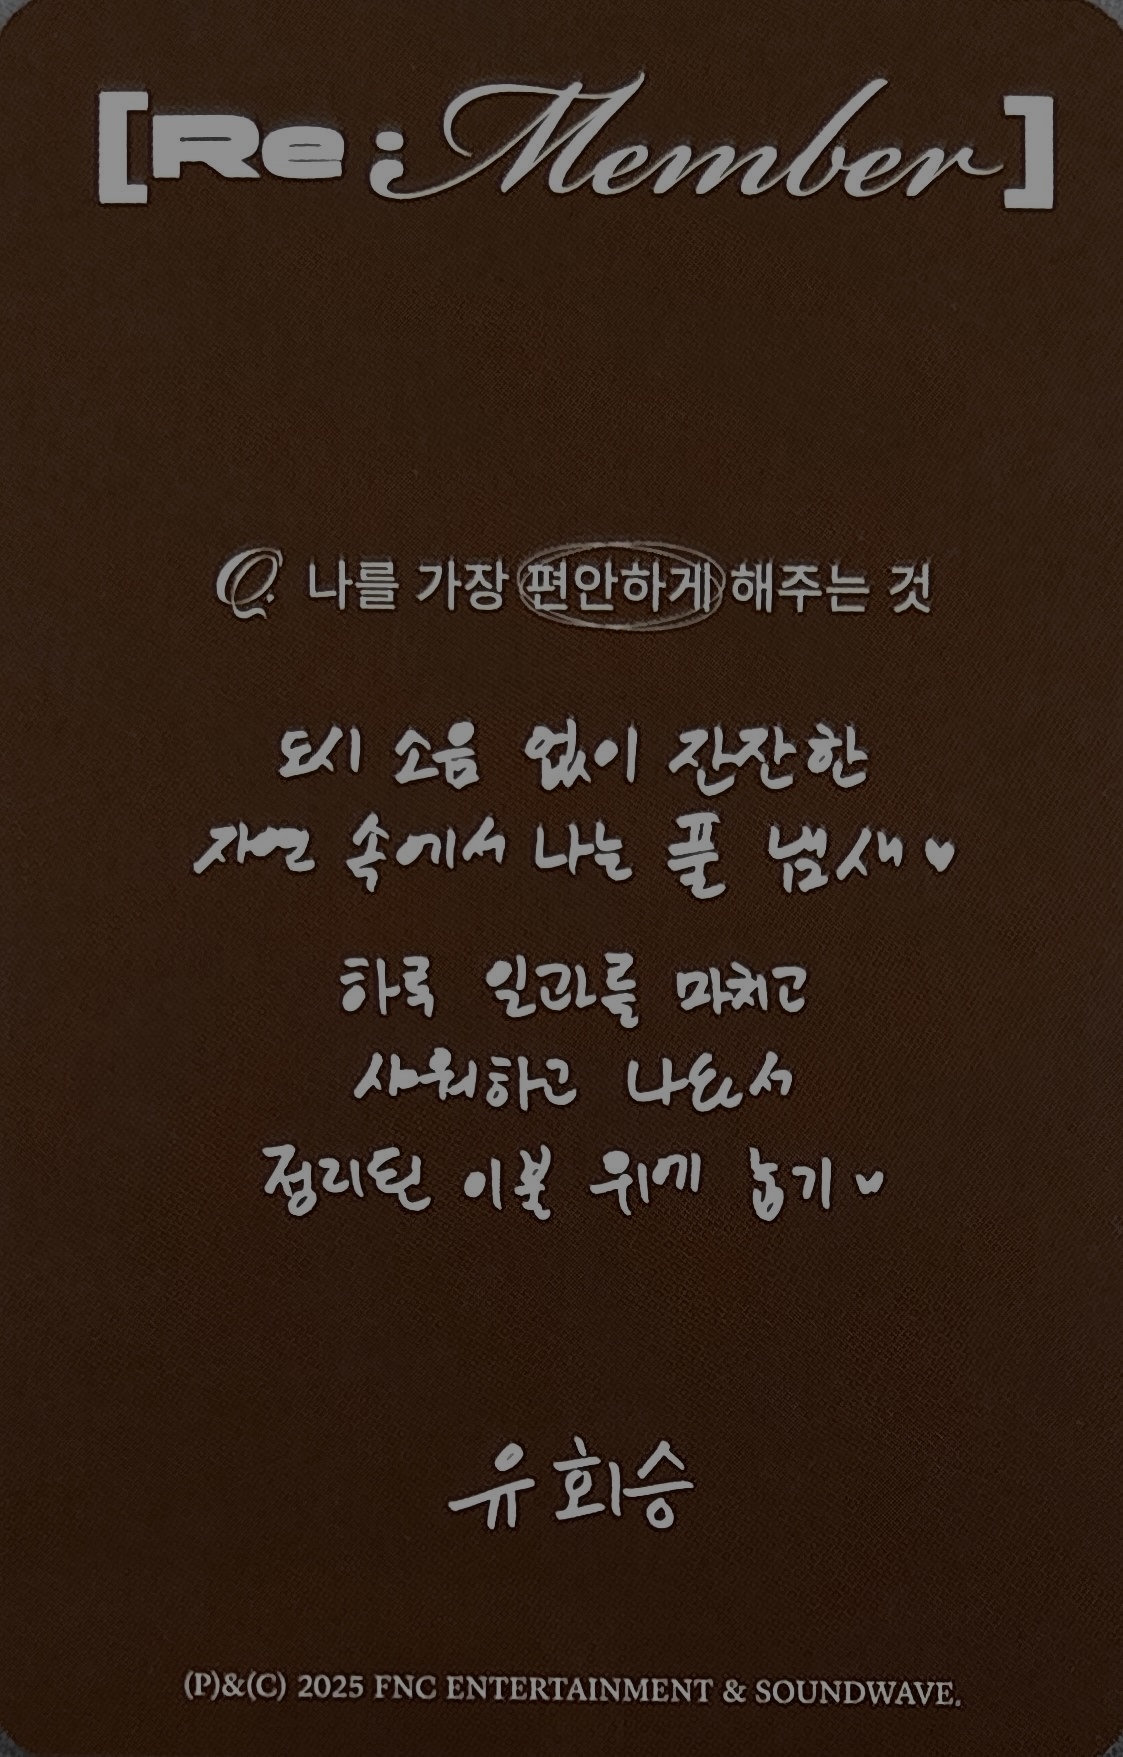 [Re;Member]
Q. 나를 가장 편안하게 해주는 것
도시 소음 없이 잔잔한
자연 속에서 나는 풀 냄새♥
하루 일과를 마치고
샤워하고 나와서
정리된 이불 위에 눕기♥
유회승
(P)&(C) 2025 FNC ENTERTAINMENT & SOUNDWAVE.